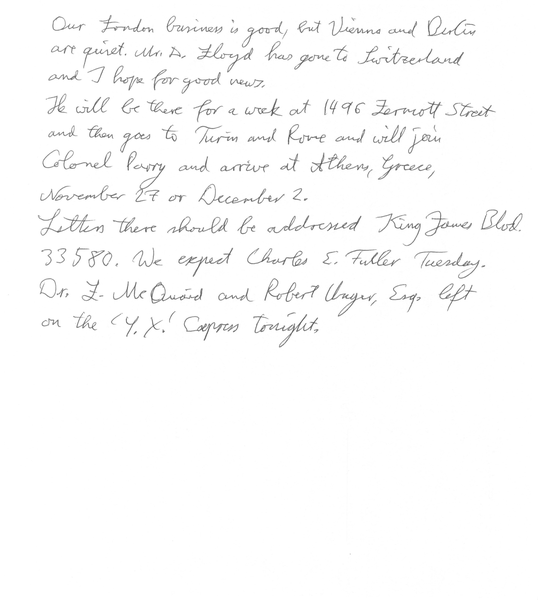 Our London business is good, but Vienna and Berlin
are quiet. Mr. D. Lloyd has gone to Switzerland
and I hope for good news.
He will be there for a week at 1496 Zermott Street
and then goes to Turin and Rome and will join
Colonel Parry and arrive at Athens, Greece,
November 27 or December 2.
Letters there should be addressed King James Blvd.
3580. We expect Charles E. Fuller Tuesday.
Dr. L. McQuaid and Robert Unger, Esq. left
on the 'Y.X.' Express tonight.